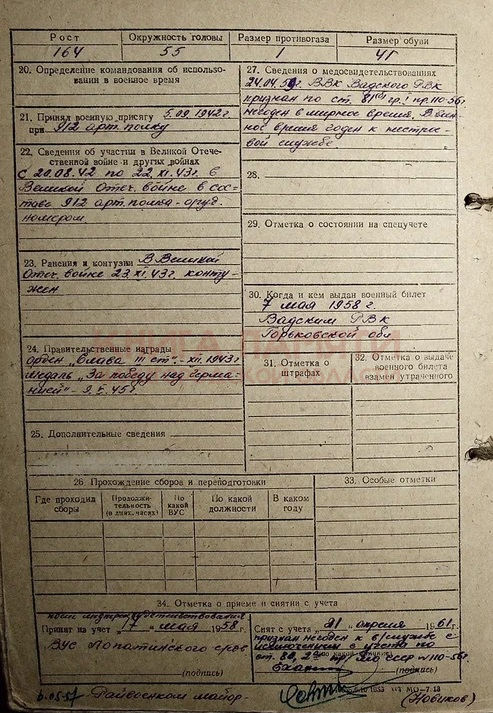 Рост Окружность головы Размер противогаза Размер обуви
164 55 1 41
20. Определение командования об использо-
вании в военное время
21. Принял военную присягу 5.09.1942 г
при 912 арт. полку
22. Сведения об участии в Великой Отече-
ственной войне и других войнах
с 20.08.42 по 22.XI.43 г. в
Великой Отеч. войне в сос-
таве 912 арт. полка - оруд.
номером
23. Ранения и контузии В Великой
Отеч. войне 23.XI.43 г. конту-
жен
24. Правительственные награды
орден "Слава III ст" - XII.1943 г
медаль "За победу над Герма-
нией" - 9.V.45 г.
25. Дополнительные сведения
27. Сведения о медосвидетельствованиях
24.04.58 г. ВВК Вадского РВК
признан по ст. гр. I пр. 110-56 г.
негоден в мирное время. В воен-
ное время годен к нестрое-
вой службе
28.
29. Отметка о состоянии на спецучете
30. Когда и кем выдан военный билет
7 мая 1958 г.
Вадским РВК
Горьковской обл
31. Отметка о
штрафах
32. Отметка о выдаче
военного билета
взамен утраченного
26. Прохождение сборов и переподготовки
Где проходил
сборы
Продолжи-
тельность
(в днях, часах)
По
какой
ВУС
По какой
должности
В каком
году
33. Особые отметки
34. Отметка о приеме и снятии с учета
Принят на учет "7" мая 1958 г.
ВУС Лопатинского
(подпись)
Снят с учета "21" апреля 1961 г.
признан негоден к в/службе с
исключением с учета по
ст. пр. МО СССР №110-56 г.
(подпись)
Райвоенком майор
(Новиков)